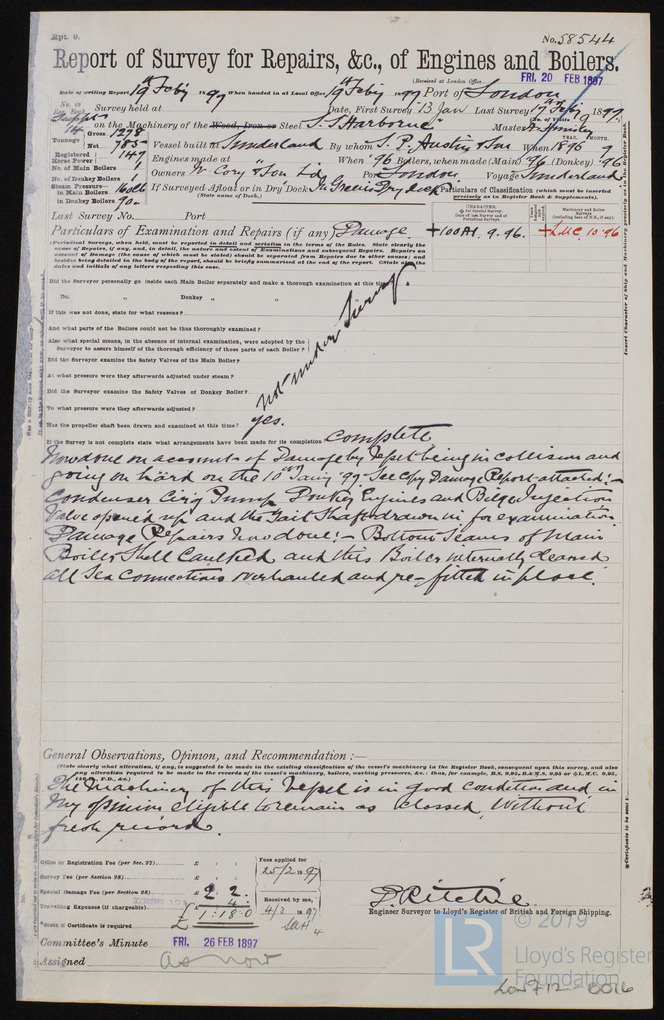 Rpt. 9.
No. 58544
Report of Survey for Repairs, &c., of Engines and Boilers.
(Received at London Office FRI. 20 FEB 1897
Date of writing Report 19th Feby 1897 When handed in at Local Office 19th Feby 1897 Port of London
No. in Reg. Book Survey held at Date, First Survey 13 Jan Last Survey 17 Feby 1897
14 on the Machinery of the Wood, Iron or Steel S.S. Harborne Master
Tonnage Gross 1278 Net 785 Vessel built at Sunderland By whom S. P. Austin & Son When 1896 9
Registered Horse Power 149 Engines made at When '96 Boilers, when made (Main) 96 (Donkey) 96
No. of Main Boilers 1 Owners Wm Cory & Son Ltd Port London Voyage Sunderland
No. of Donkey Boilers 1
Steam Pressure in Main Boilers 160 lb If Surveyed Afloat or in Dry Dock In Dry Dock
(State name of Dock.)
in Donkey Boilers 90
Particulars of Classification (which must be inserted precisely as in Register Book & Supplements).
Last Survey No. Port
CHARACTER. for Special Survey. Date of last Survey and of Periodical Surveys.
Machinery and Boiler Surveys (including date of N.B., if any).
Particulars of Examination and Repairs (if any) Damage
+100A1. 9.96. +LMC. 10.96
(Periodical Surveys, when held, must be reported in detail and seriatim in the terms of the Rules. State clearly the cause of Repairs, if any, and, in detail, the nature and extent of Examinations and subsequent Repairs. Repairs on account of Damage (the cause of which must be stated) should be separated from Repairs due to other causes; and besides being detailed in the body of the report, should be briefly summarised at the end of the report. State also the dates and initials of any letters respecting this case.
Did the Surveyor personally go inside each Main Boiler separately and make a thorough examination at this time?
Do. " Donkey " "
If this was not done, state for what reasons?
And what parts of the Boilers could not be thus thoroughly examined?
Also what special means, in the absence of internal examination, were adopted by the Surveyor to assure himself of the thorough efficiency of those parts of each Boiler?
Did the Surveyor examine the Safety Valves of the Main Boiler?
At what pressure were they afterwards adjusted under steam?
Did the Surveyor examine the Safety Valves of Donkey Boiler?
not under Survey.
To what pressure were they afterwards adjusted?
Has the propeller shaft been drawn and examined at this time? yes.
If the Survey is not complete state what arrangements have been made for its completion complete
Now done on account of Damage by Vessel being in collision and
going on hard on the 10th Jany 97. See Copy Damage Report attached:-
Condenser Circg Pump, Donkey Engines and Bilge Injection
Valve opened up and the Tail Shaft drawn in for examination
Damage Repairs now done:- Bottom Seams of Main
Boiler Shell Caulked and this Boiler internally cleaned
all Sea Connections overhauled and re-fitted in place.
General Observations, Opinion, and Recommendation:—
(State clearly what alteration, if any, is suggested to be made in the existing classification of the vessel's machinery in the Register Book, consequent upon this survey, and also any alteration required to be made in the records of the vessel's machinery, boilers, working pressures, &c.: thus, for example, B.S. 9,95, B.&M.S. 9,95 or L.M.C. 9,95, F.D., &c.)
The Machinery of this Vessel is in good condition and in
my opinion eligible to remain as Classed, Without
fresh record.
Office or Registration Fee (per Sec. 27) £
Fees applied for 25/2 1897
Survey Fee (per Section 28) £
Special Damage Fee (per Section 28) £ 2 2
Travelling Expenses (if chargeable) £ 4
Received by me, 4/3 1897
£ 1:18:0
State if Certificate is required
D. Ritchie
Engineer Surveyor to Lloyd's Register of British and Foreign Shipping.
Committee's Minute FRI. 26 FEB 1897
Assigned as now
© 2019
LR Lloyd's Register Foundation
Lon 712-0016
Insert Character of Ship and Machinery precisely as in the Register Book